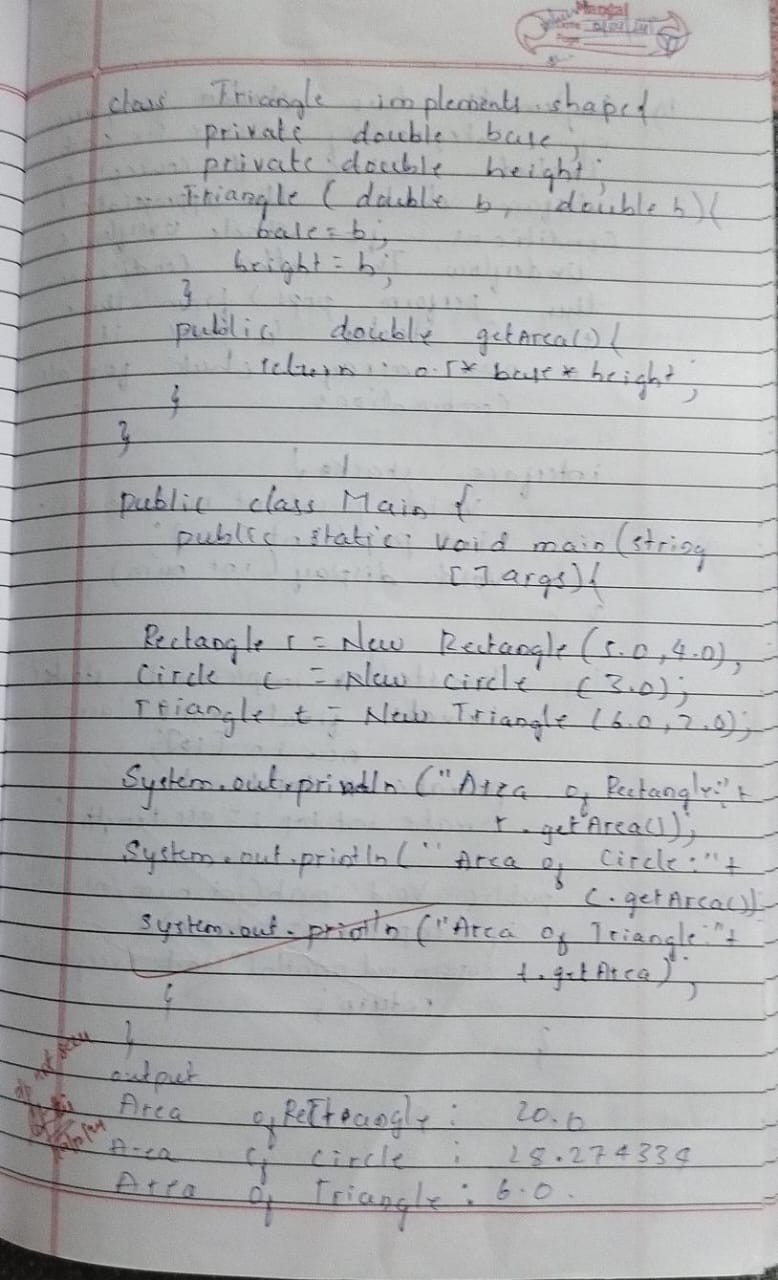 class Triangle implements shaped
private double base;
private double height;
Triangle (double b, double h){
base = b;
height = h;
}
public double getArea(){
return 0.5* base * height;
}
}
public class Main {
public static void main(string
[] args){
Rectangle r = New Rectangle (5.0,4.0),
Circle c = New circle (3.0);
Triangle t = New Triangle (6.0,2.0);
System.out.println ("Area of Rectangle:"+
r.getArea());
System.out.println ("Area of Circle:"+
c.getArea())
system.out.println ("Area of Triangle:"+
t.getArea);
}
}
output
Area of Rectangle: 20.0
Area of circle : 28.274334
Area of Triangle: 6.0.